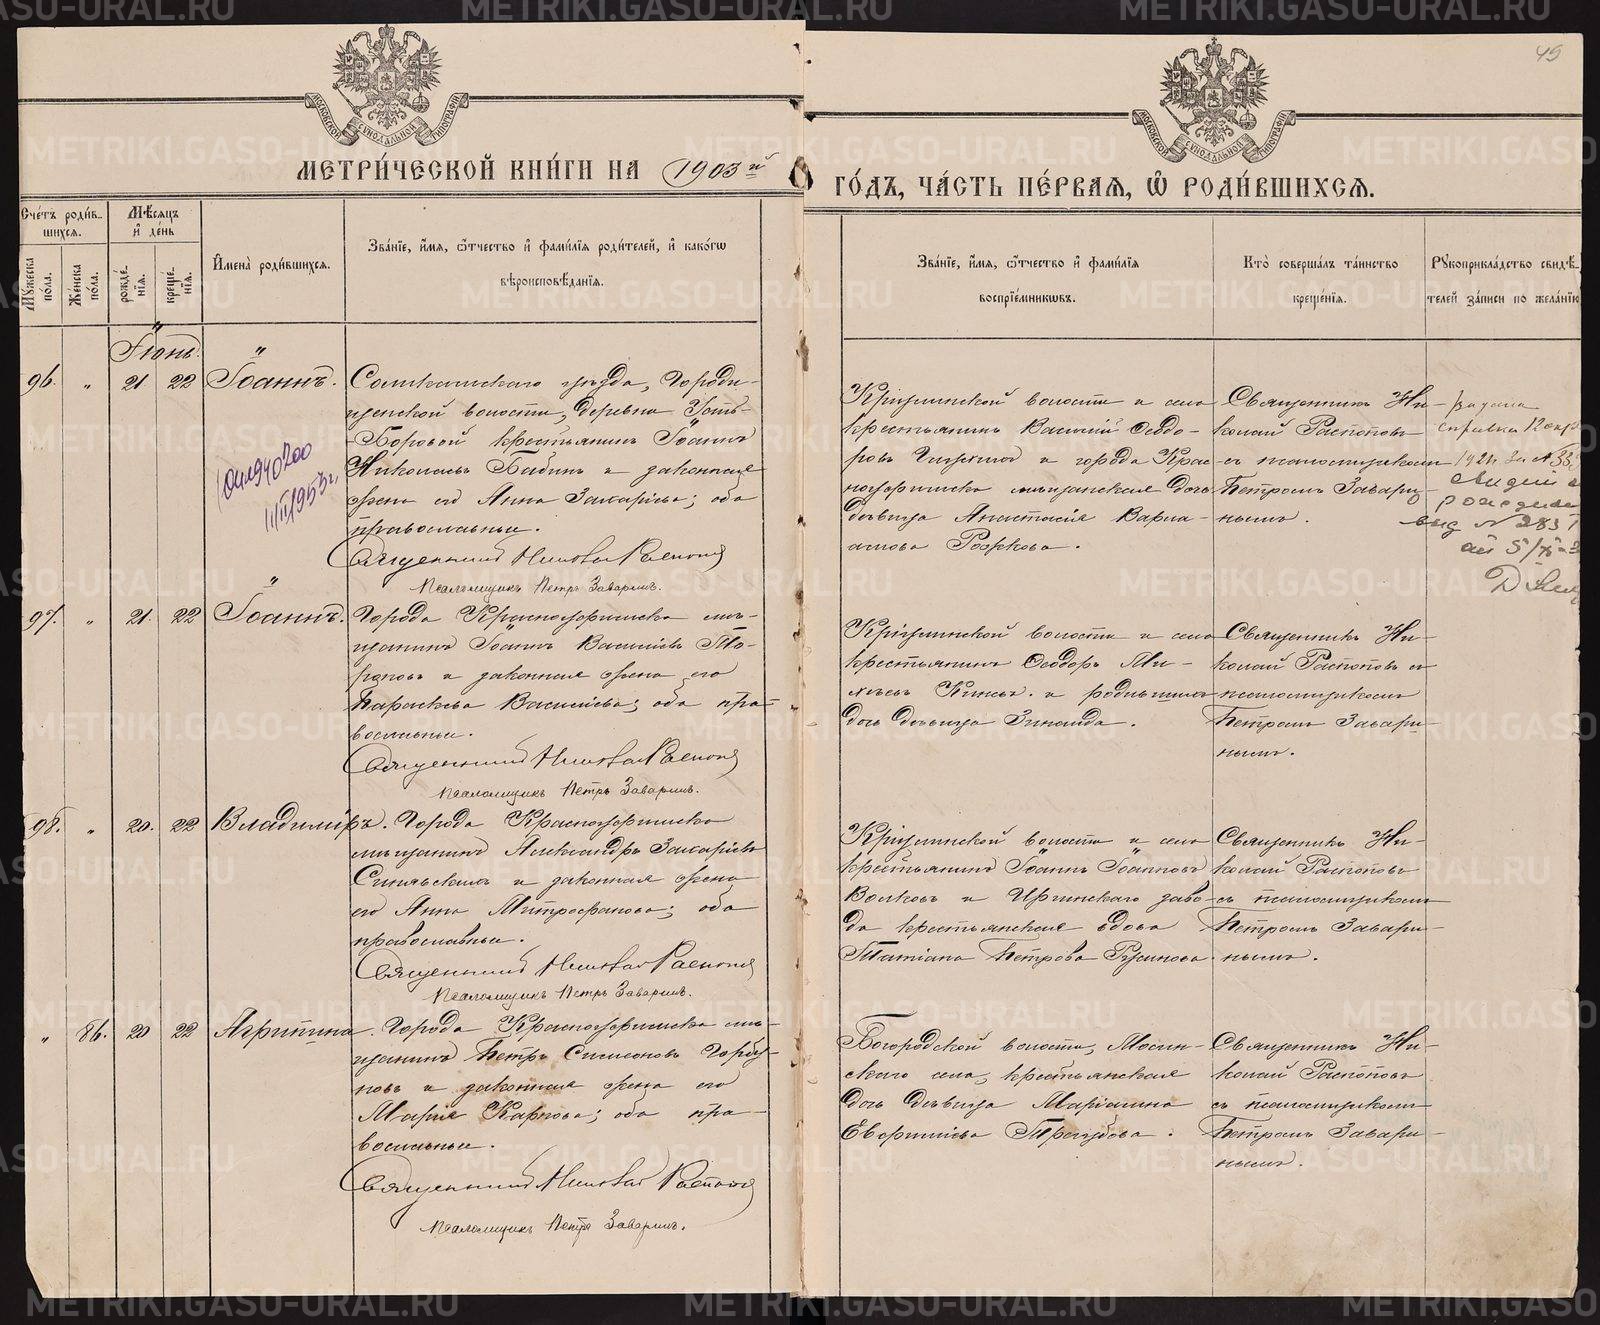 45
МОСКОВСКОЙ СѴНОДАЛЬНОЙ ТИПОГРАФІИ
МОСКОВСКОЙ СѴНОДАЛЬНОЙ ТИПОГРАФІИ
МЕТРИ́ЧЕСКОЙ КНИ́ГИ НА 1903й ГО́ДЪ, ЧА́СТЬ ПЕ́РВАѦ, Ѽ РОДИ́ВШИХСѦ.
Сче́тъ роди́в-
шихсѧ.
Мꙋжеска по́ла.
Же́нска по́ла.
Мѣ́сѧцъ
и҆ де́нь
рожде́-
нїѧ.
креще́-
нїѧ.
И҆мена̀ роди́вшихсѧ.
Зва́нїе, и҆́мѧ, ѻ҆́тчество и҆ фами́лїѧ роди́телей, и҆ како́гѡ
вѣроисповѣ́данїѧ.
Зва́нїе, и҆́мѧ, ѻ҆́тчество и҆ фами́лїѧ
воспрїе́мникѡвъ.
Кто̀ соверша́лъ та́инство
креще́нїѧ.
Рꙋкоприкла́дство свидѣ́-
телей за́писи по жела́нїю
Іюнь.
96. " 21 22 Іоаннъ.
Соликамскаго уѣзда, Городи-
щенской волости, деревни Усть-
-Боровой крестьянинъ Іоаннъ
Николаевъ Бабинъ и законная
жена его Анна Захаріева; оба
православные.
Священникъ Николай Распоповъ
Псаломщикъ Петръ Заваринъ.
11/II 1953 г.
Крiулинской волости и села
крестьянинъ Василiй Ѳеодо-
ровъ и города Крас-
ноуфимска мѣщанская дочь
дѣвица Анастасія Варла-
амова .
Священникъ Ни-
колай Распоповъ
съ псаломщикомъ
Петромъ Завари-
нымъ.
справка
97. " 21. 22 Іоаннъ.
Города Красноуфимска мѣ-
щанинъ Іоаннъ Василіевъ То-
роповъ и законная жена его
Параскева Василіева; оба пра-
вославные.
Священникъ Николай Распоповъ
Псаломщикъ Петръ Заваринъ.
Крiулинской волости и села
крестьянинъ Ѳеодоръ Ми-
и родившаго
дочь дѣвица Зинаида.
Священникъ Ни-
колай Распоповъ съ
псаломщикомъ
Петромъ Завари-
нымъ.
98. " 20. 22 Владиміръ.
Города Красноуфимска
мѣщанинъ Александръ Захаріевъ
и законная жена
его Анна Митрофанова; оба
православные.
Священникъ Николай Распоповъ
Псаломщикъ Петръ Заваринъ.
Крiулинской волости и села
крестьянинъ Іоаннъ Іоанновъ
Волковъ и Иргинскаго заво-
да крестьянская вдова
Татіана Петрова Русинова.
Священникъ Ни-
колай Распоповъ
съ псаломщикомъ
Петромъ Завари-
нымъ.
" 86. 20 22 Агрипина.
Города Красноуфимска мѣ-
щанинъ Петръ Симеоновъ Горбу-
новъ и законная жена его
Марія Карпова; оба пра-
вославные.
Священникъ Николай Распоповъ
Псаломщикъ Петръ Заваринъ.
Богородской волости, Мосин-
скаго села, крестьянская
дочь дѣвица Маріамна
Евфиміева Трегубова.
Священникъ Ни-
колай Распоповъ
съ псаломщикомъ
Петромъ Завари-
нымъ.
METRIKI.GASO-URAL.RU